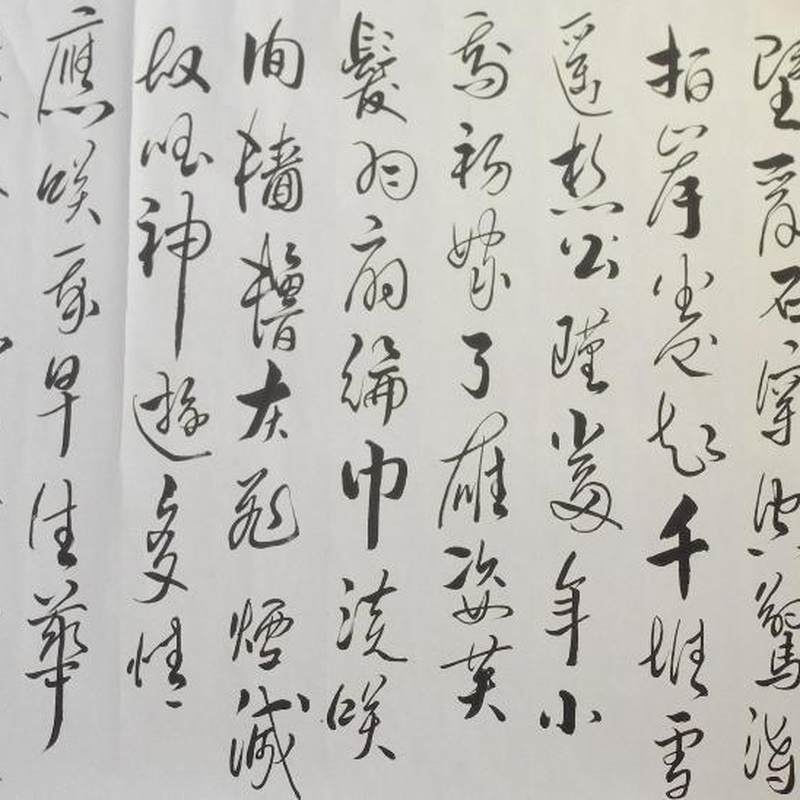 壁亂石穿空驚濤
拍岸卷起千堆雪
遙想公瑾當年小
喬初嫁了雄姿英
髮羽扇綸巾談咲
間檣櫓灰飛煙滅
故國神遊多情
應咲我早生華